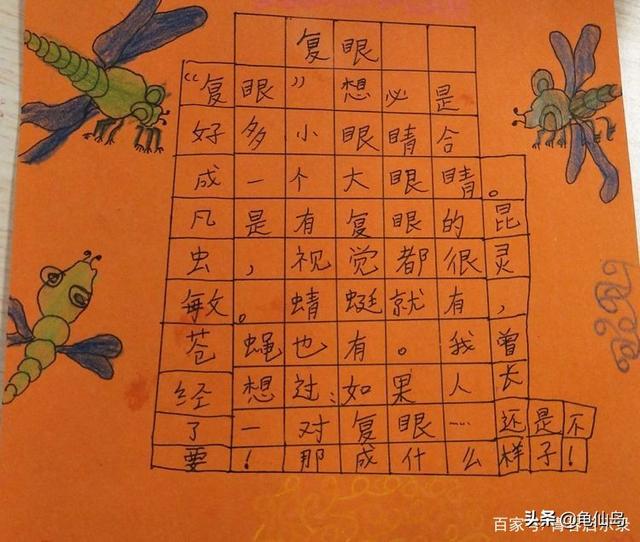 复眼
“复眼”想必是
好多小眼睛合
成一个大眼睛。
凡是有复眼的昆
虫，视觉都很灵
敏。蜻蜓就有，
苍蝇也有。我曾
经想过：如果人长
了一对复眼…还是不
要！那成什么样子！
头条@龟仙岛